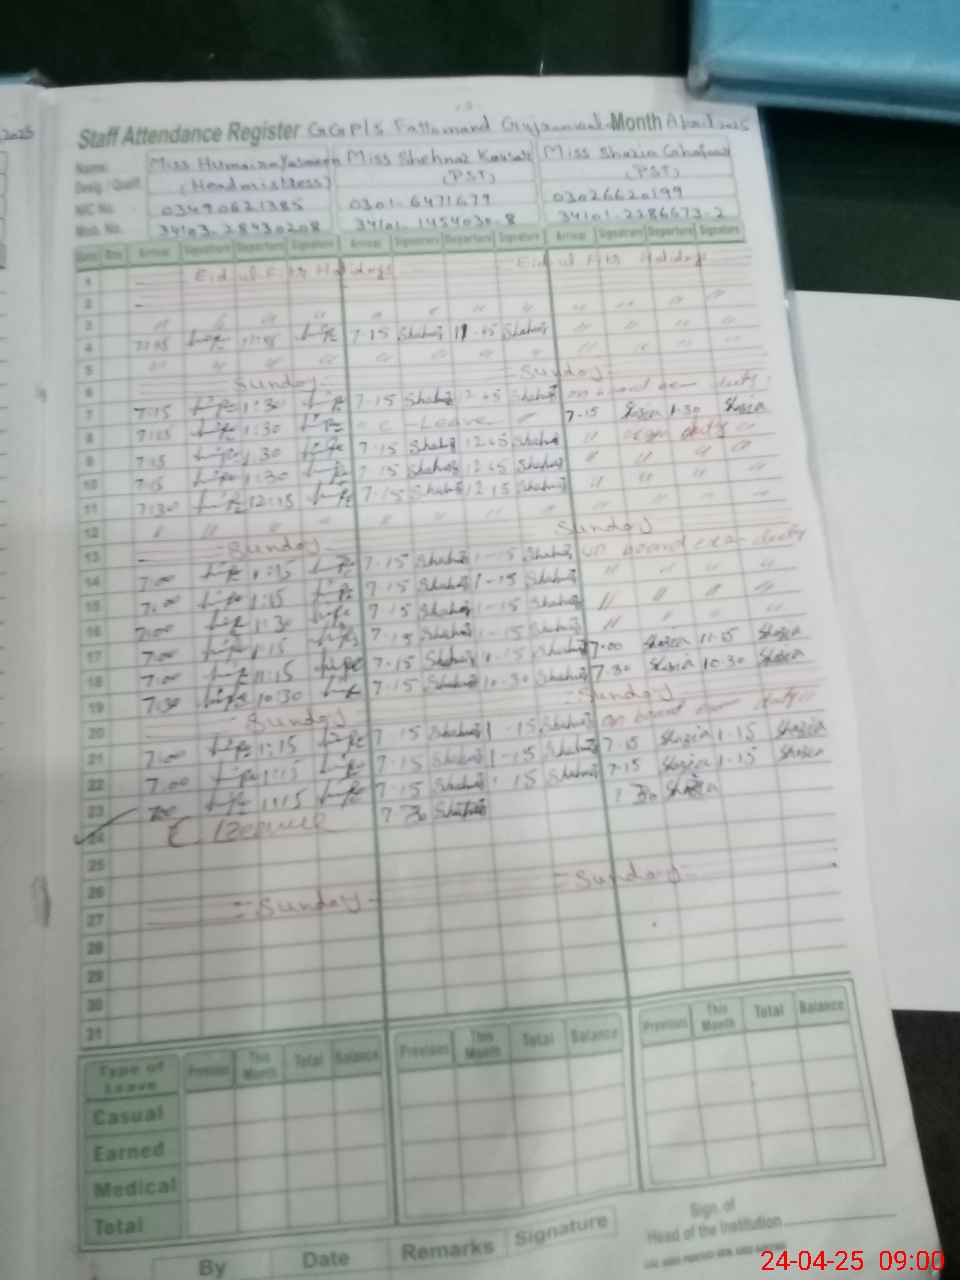 2025
Staff Attendance Register GGP/S Fattomand Gujranwala Month April 2025
Name: Miss Humaira Yasmeen Miss Shehnaz Kausar Miss Shazia
Desig. / Qualif. (Headmistress) (PST) (PST)
NIC No. 03490621385 0301-6471679 03026620199
Mob. No. 34103-28430208 34101-1454030-8 34101-2286673-2
Date Day Arrival Signature Departure Signature Arrival Signature Departure Signature Arrival Signature Departure Signature
1 Eid ul Fitr Holidays Eid ul Fitr Holidays
2
3 " " " " " " " " " " " "
4 7:15 7-15 Shehnaz 11-45 Shehnaz " " " "
5 " " " " " " " " " " " "
6 Sunday Sunday
7 7:15 1:30 7-15 Shehnaz 12-45 Shehnaz on board exam duty
8 7:15 1:30 C-Leave 7-15 Shazia 1-30 Shazia
9 7:15 1:30 7-15 Shehnaz 12-45 Shehnaz " exam duty "
10 7:15 1:30 7-15 Shehnaz 12-45 Shehnaz " " " "
11 7:30 12:15 7-15 Shehnaz 12-15 Shehnaz " " " "
12 " " " " " " " " " " " "
13 Sunday Sunday
14 7:00 1:15 7-15 Shehnaz 1-15 Shehnaz on board exam duty
15 7:00 1:15 7-15 Shehnaz 1-15 Shehnaz " " " "
16 7:00 1:30 7-15 Shehnaz 1-15 Shehnaz " " " "
17 7:00 1:15 7-15 Shehnaz 1-15 Shehnaz " " " "
18 7:00 11:15 7-15 Shehnaz 11-15 Shehnaz 7-00 Shazia 11-15 Shazia
19 7:30 10:30 7-15 Shehnaz 10-30 Shehnaz 7-30 Shazia 10-30 Shazia
20 Sunday Sunday
21 7:00 1:15 7-15 Shehnaz 1-15 Shehnaz on board exam duty
22 7:00 1:15 7-15 Shehnaz 1-15 Shehnaz 7-15 Shazia 1-15 Shazia
23 7:00 1:15 7-15 Shehnaz 1-15 Shehnaz 7-15 Shazia 1-15 Shazia
24 C. Leave 7 30 Shehnaz 7 30 Shazia
25
26
27 Sunday Sunday
28
29
30
31
Type of Leave Previous This Month Total Balance Previous This Month Total Balance Previous This Month Total Balance
Casual
Earned
Medical
Total
By Date Remarks Signature
Sign. of
Head of the Institution
24-04-25 09:00